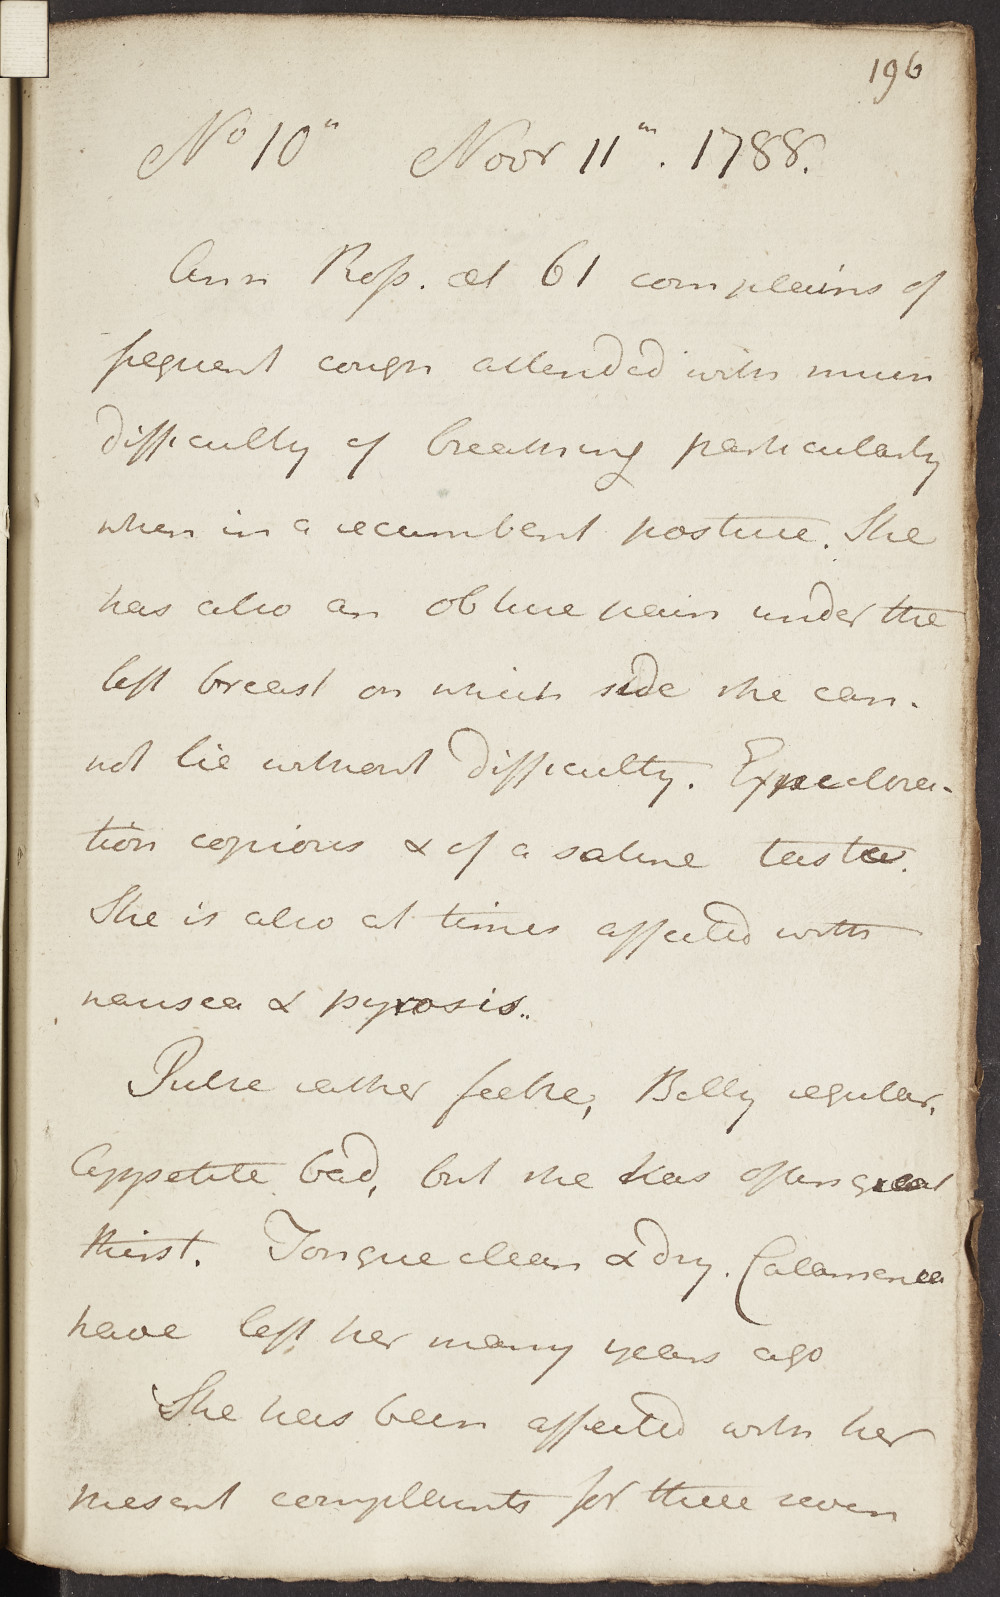 196
No 10" Novr 11th. 1788.
Ann Ross. æt 61 complains of
frequent cough attended with much
difficulty of breathing particularly
when in a recumbent posture. She
has also an obtuse pain under the
left breast on which side she can-
not lie without difficulty. Expectora-
tion copious & of a saline taste.
She is also at times affected with
nausea & pyrosis.
Pulse rather feeble, Belly regular,
Appetite bad, but she has often great
thirst. Tongue clean & dry. Catamenia
have left her many years ago
She has been affected with her
present complaints for these seven